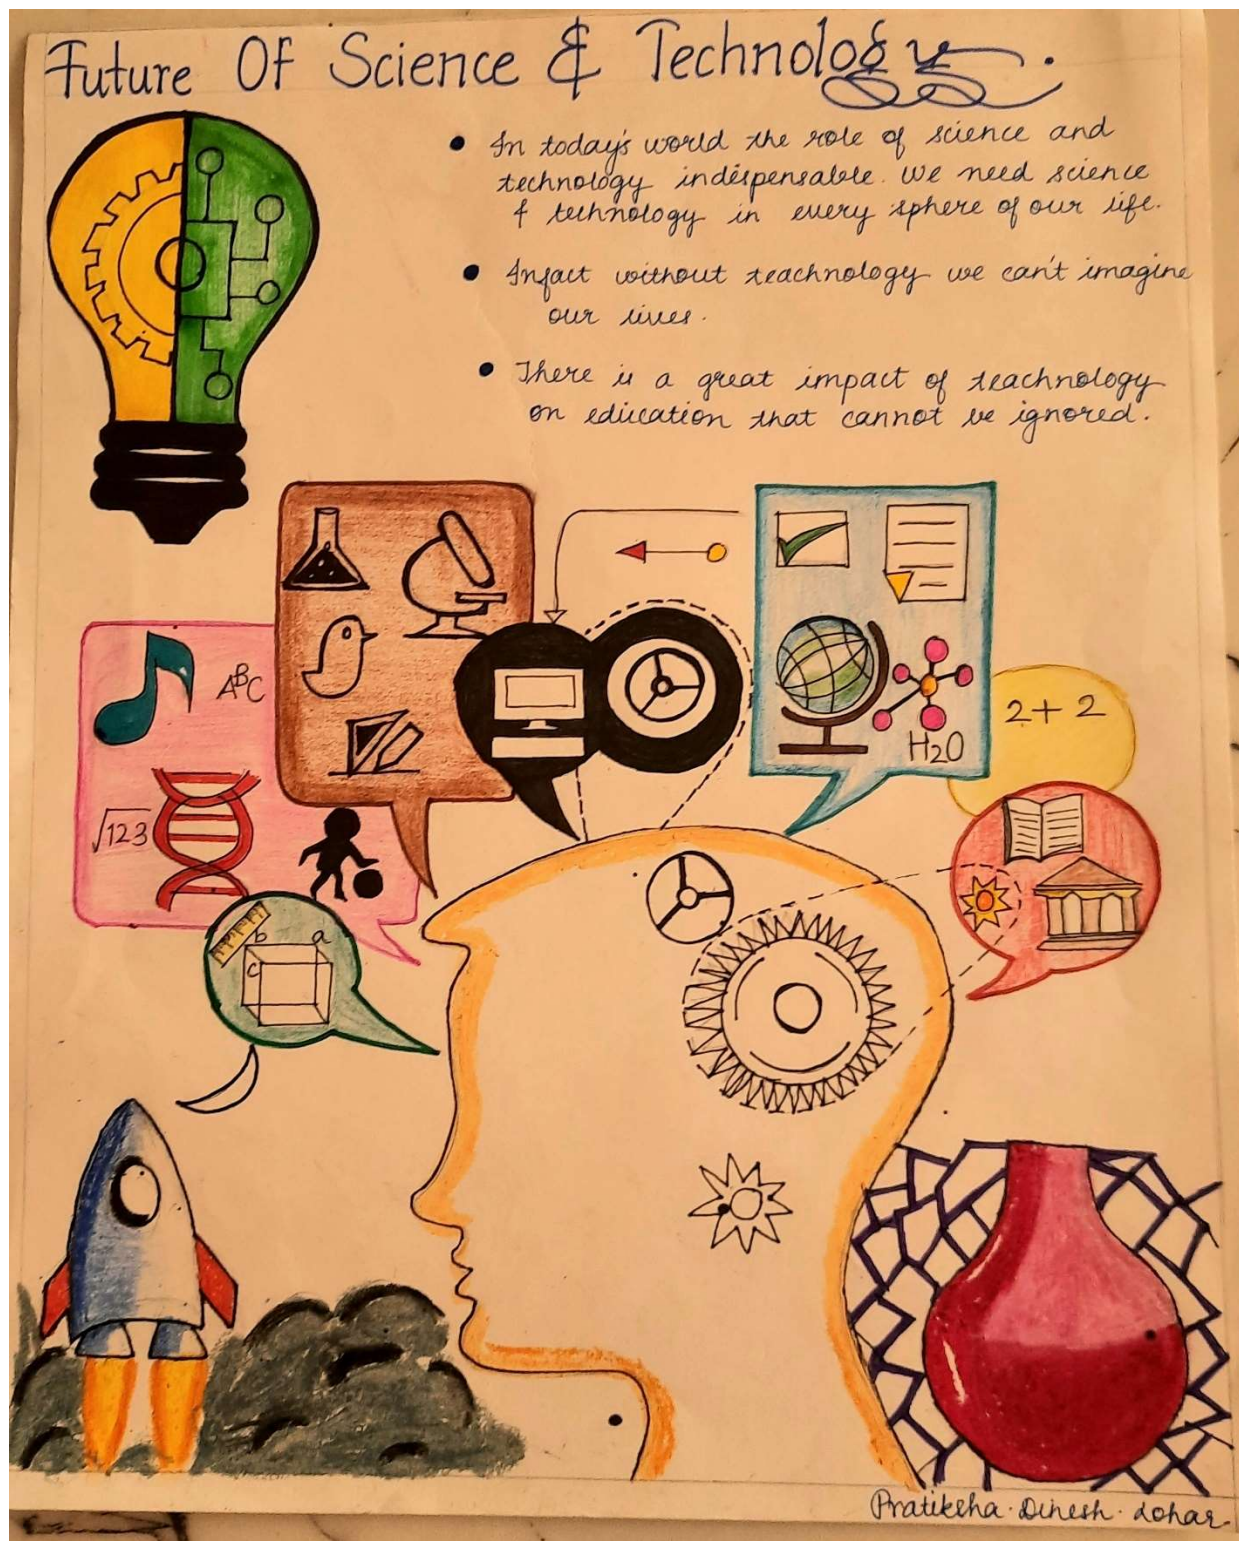 Future Of Science & Technology.
• In today's world the role of science and
technology indispensable. We need science
& technology in every sphere of our life.
• Infact without teachnology we can't imagine
our lives.
• There is a great impact of teachnology
on education that cannot be ignored.
ABC
√123
b a
c
H2O
2+2
Pratiksha. Dinesh. Lohar.